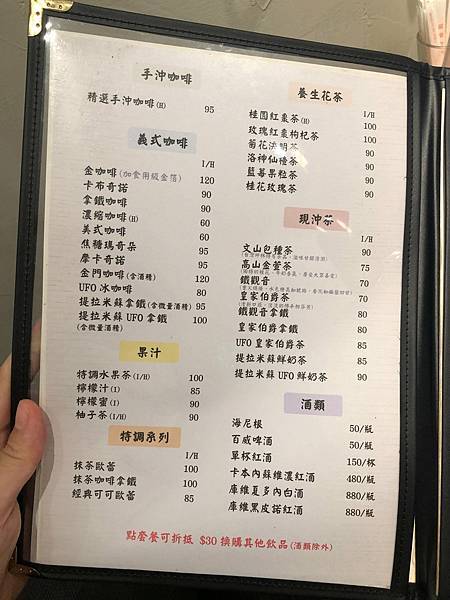 手沖咖啡
精選手沖咖啡(H) 95
義式咖啡
I/H
金咖啡(加食用級金箔) 120
卡布奇諾 90
拿鐵咖啡 90
濃縮咖啡(H) 60
美式咖啡 60
焦糖瑪奇朵 95
摩卡奇諾 95
金門咖啡(含酒精) 120
UFO 冰咖啡 80
提拉米蘇拿鐵(含微量酒精) 95
提拉米蘇 UFO 拿鐵 100
(含微量酒精)
果汁
特調水果茶(I/H) 100
檸檬汁(I) 85
檸檬蜜(I) 90
柚子茶(I/H) 90
特調系列
I/H
抹茶歐蕾 100
抹茶咖啡拿鐵 100
經典可可歐蕾 85
養生花茶
I/H
桂圓紅棗茶(H) 100
玫瑰紅棗枸杞茶 100
菊花決明茶 90
洛神仙楂茶 90
藍莓果粒茶 90
桂花玫瑰茶 90
現沖茶
I/H
文山包種茶 90
高山金萱茶 75
鐵觀音 70
皇家伯爵茶 70
鐵觀音拿鐵 80
皇家伯爵拿鐵 80
UFO 皇家伯爵茶 85
提拉米蘇鮮奶茶 85
提拉米蘇 UFO 鮮奶茶 90
酒類
海尼根 50/瓶
百威啤酒 50/瓶
單杯紅酒 150/杯
卡本內蘇維濃紅酒 480/瓶
庫維夏多內白酒 880/瓶
庫維黑皮諾紅酒 880/瓶
點套餐可折抵 $30 換購其他飲品(酒類除外)